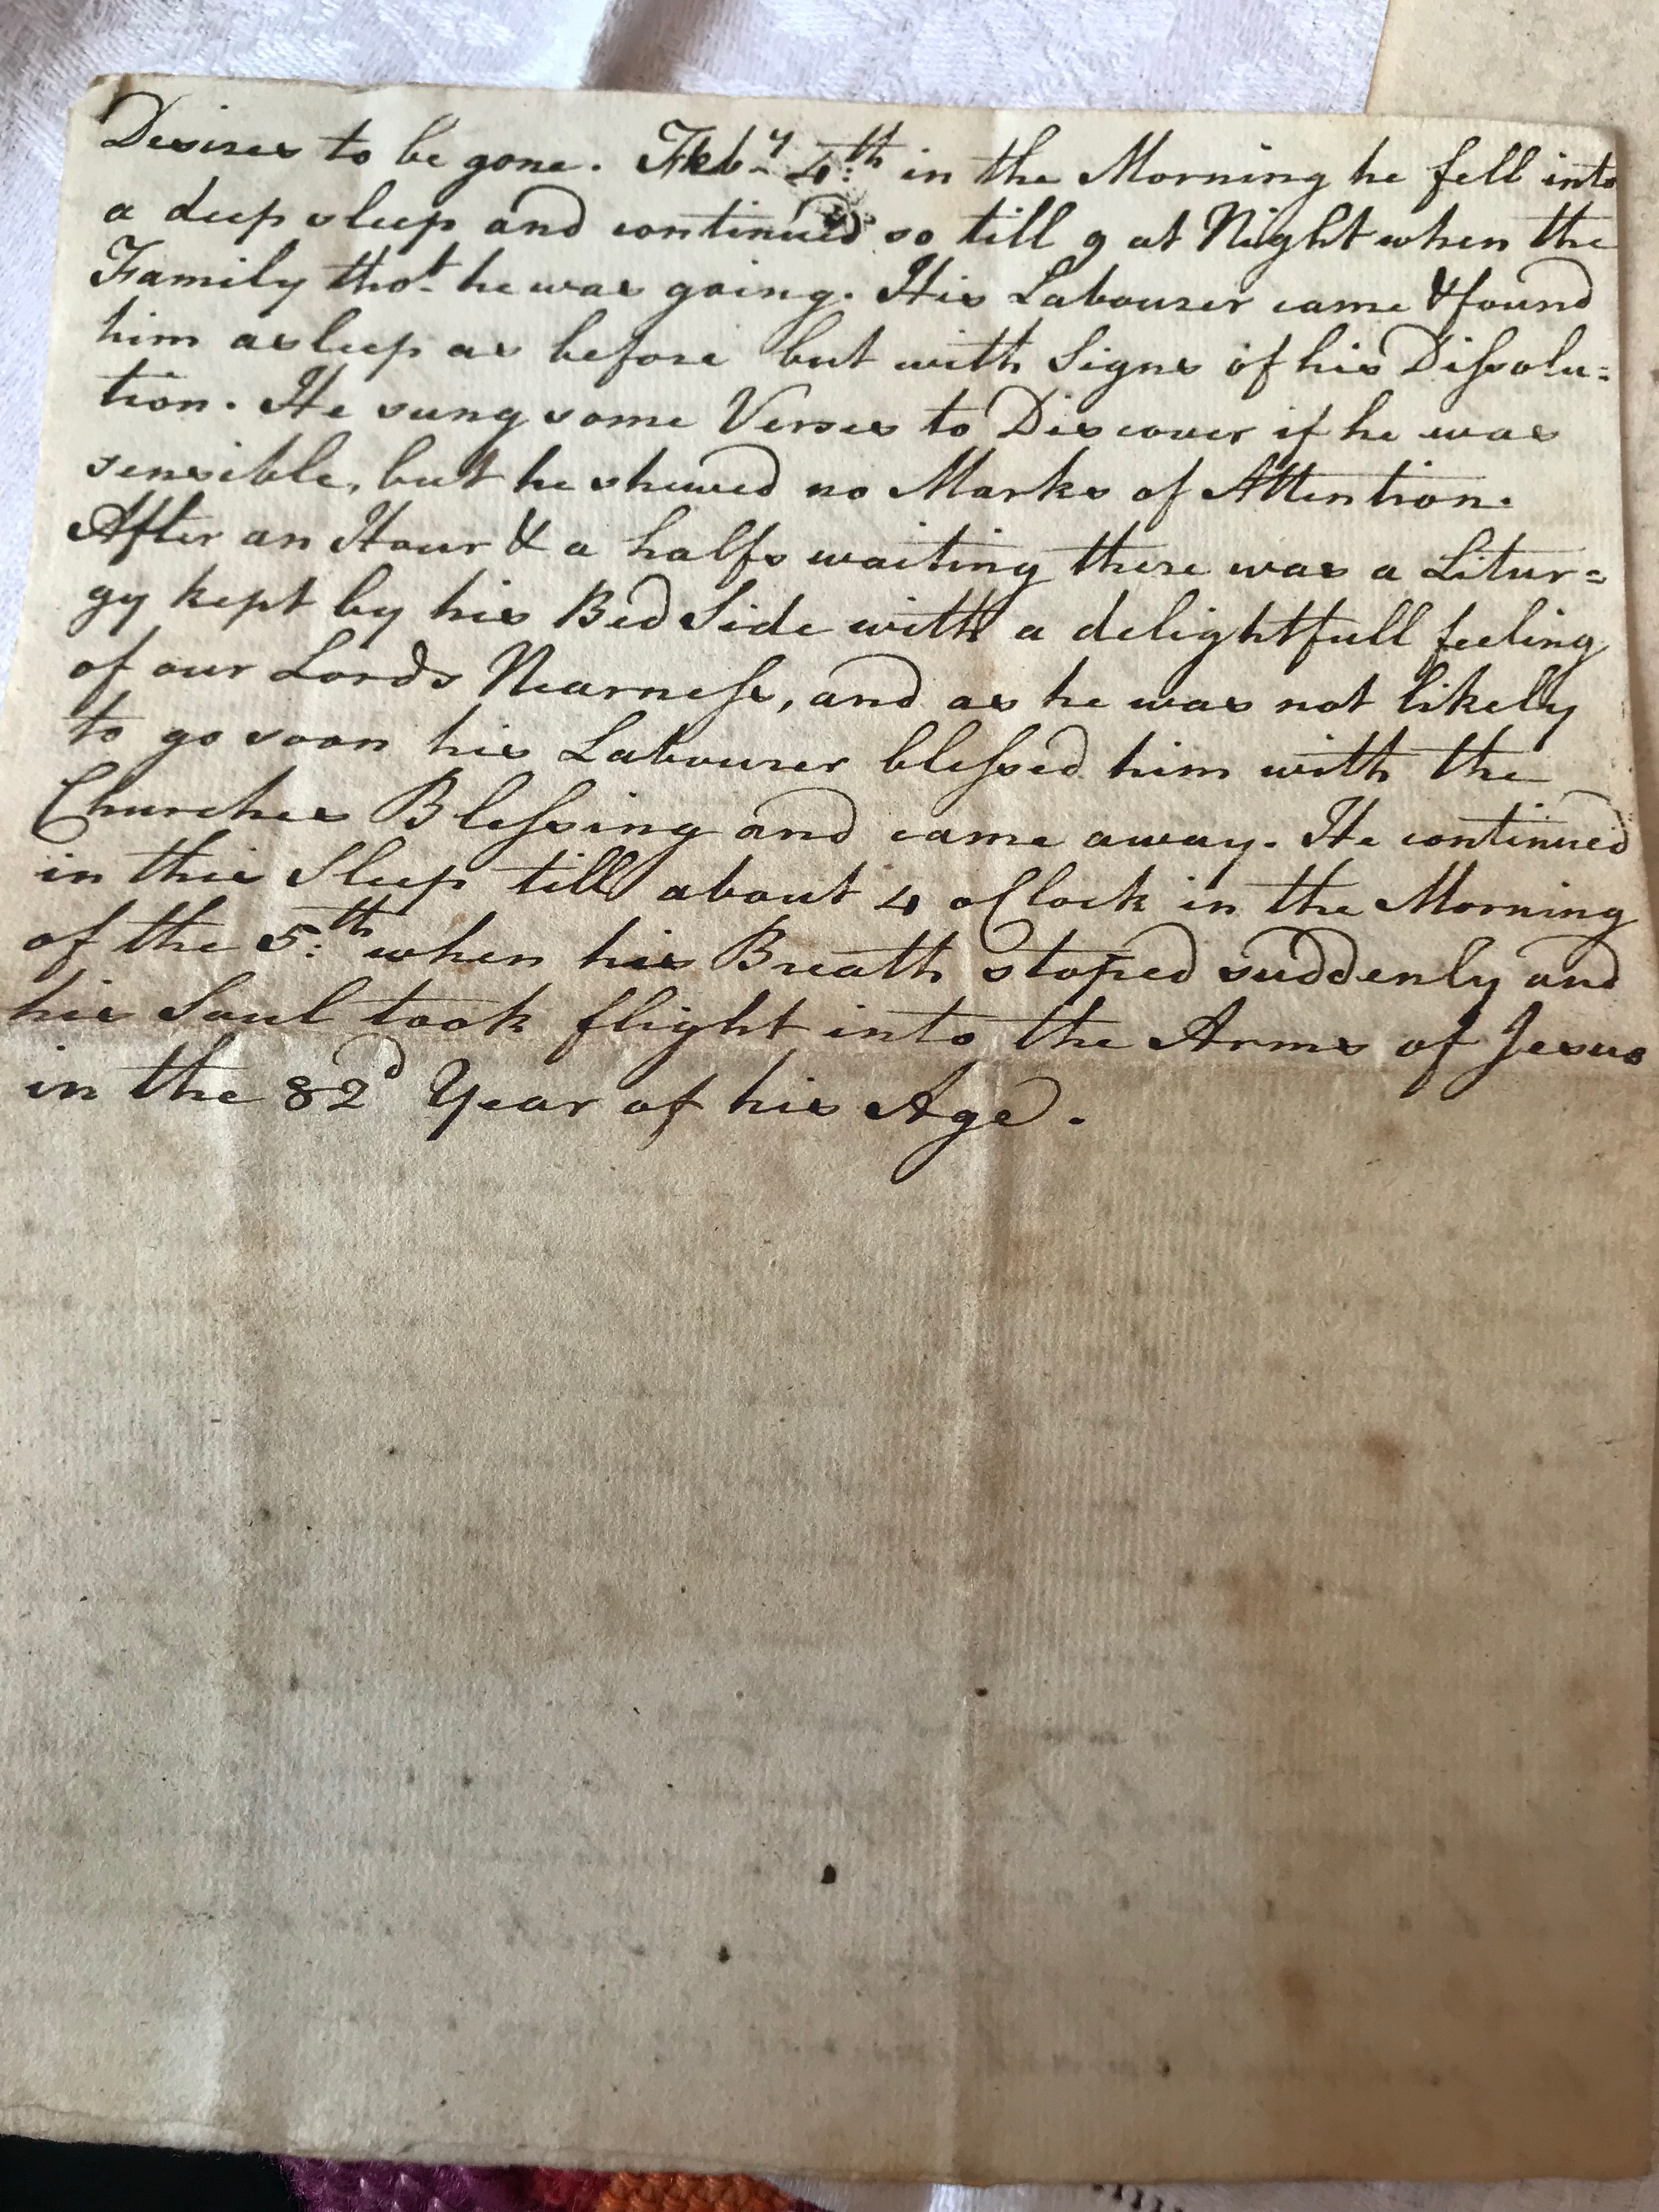 Desires to be gone. Feb.y 4:th in the Morning he fell into
a deep sleep and continued so till 9 at Night when the
Family tho.t he was going. His Labourer came & found
him asleep as before but with Signs of his Dißolu=
tion. He sung some Verses to Discover if he was
sensible, but he shewed no Marks of Attention.
After an Hour & a halfs waiting there was a Litur=
gy kept by his Bed Side with a delightfull feeling
of our Lords Nearneſs, and as he was not likely
to go soon his Labourer bleſsed him with the
Churches Bleſsing and came away. He continued
in this Sleep till about 4 oClock in the Morning
of the 5:th when his Breath stoped suddenly and
his Soul took flight into the Arms of Jesus
in the 82d Year of his Age.